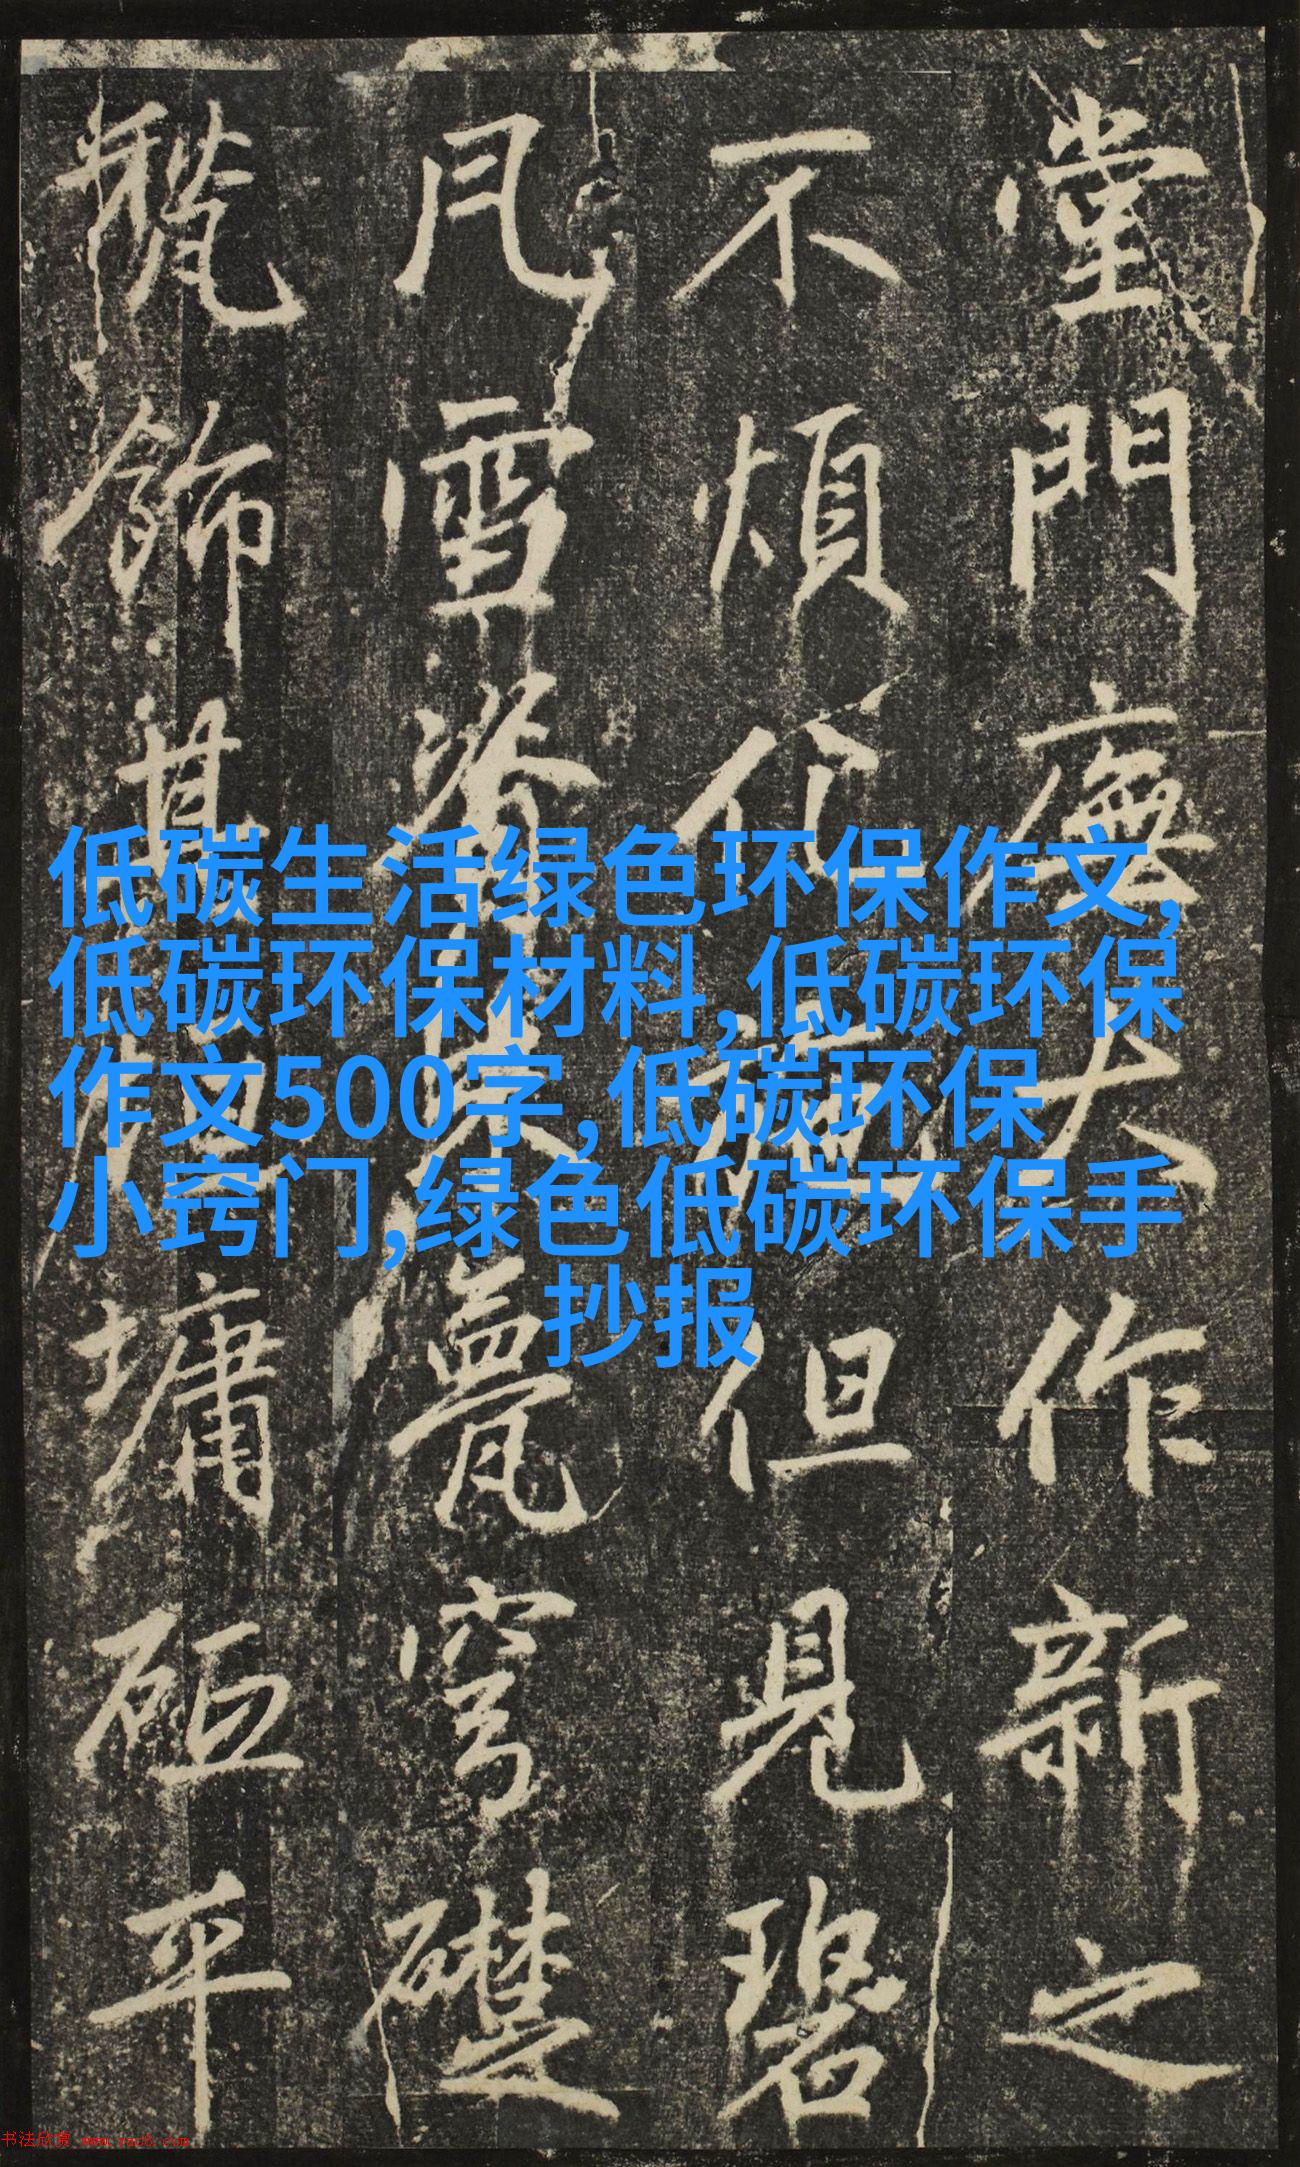 低碳生活绿色环保作文,
低碳环保材料,低碳环保
作文500字,低碳环保
小窍门,绿色低碳环保手
抄报
堂門廡大作新之
不煩施但見碧
雪甍穹礎
飾其垣墉平
书法欣赏